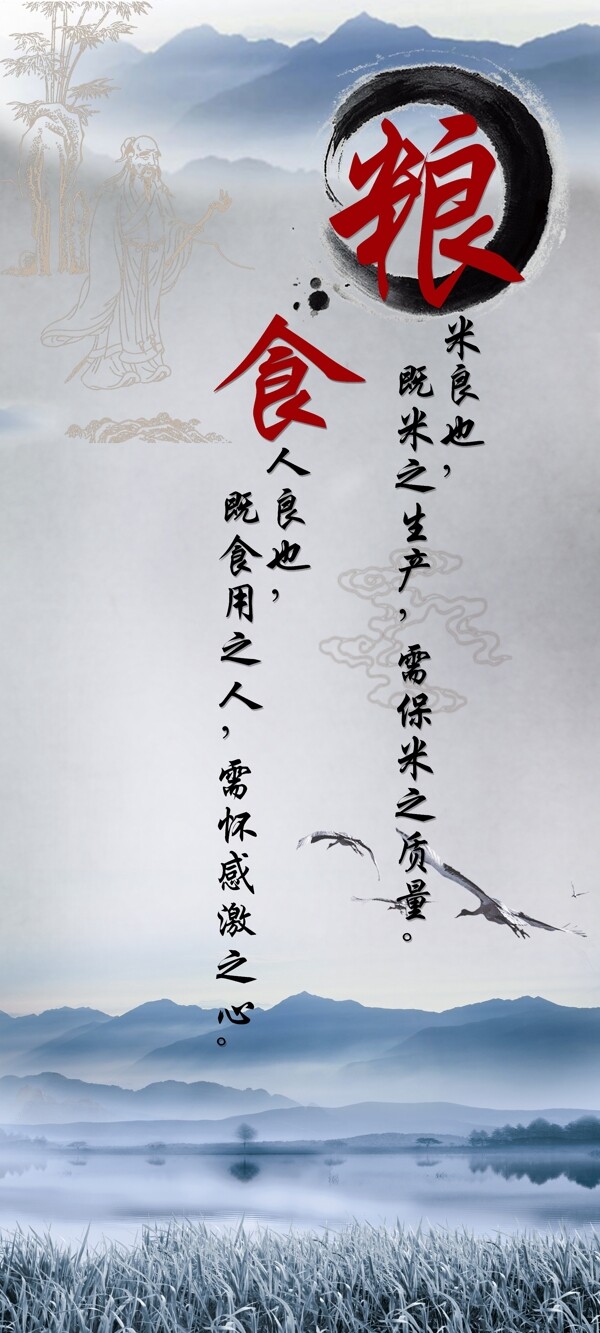 粮
米良也，
既米之生产，需保米之质量。
食
人良也，
既食用之人，需怀感激之心。